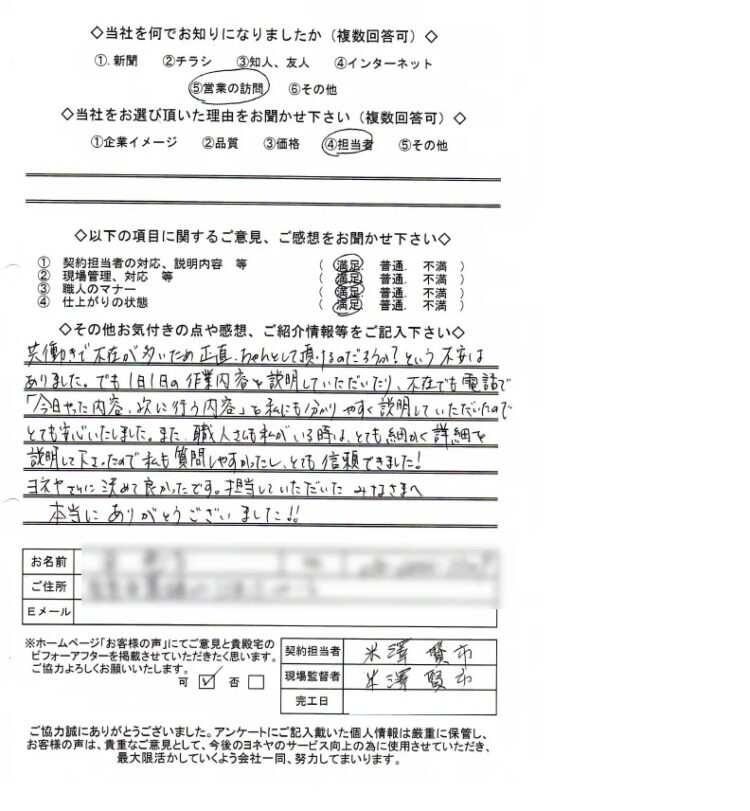 ◇当社を何でお知りになりましたか（複数回答可）◇
①.新聞　②チラシ　③知人、友人　④インターネット
⑤営業の訪問　⑥その他
◇当社をお選び頂いた理由をお聞かせ下さい（複数回答可）◇
①企業イメージ　②品質　③価格　④担当者　⑤その他
◇以下の項目に関するご意見、ご感想をお聞かせ下さい◇
①　契約担当者の対応、説明内容　等　（　満足.　普通.　不満　）
②　現場管理、対応　等　（　満足.　普通.　不満　）
③　職人のマナー　（　満足.　普通.　不満　）
④　仕上がりの状態　（　満足.　普通.　不満　）
◇その他お気付きの点や感想、ご紹介情報等をご記入下さい◇
共働きで不在が多いため正直、ちゃんとして頂けるのだろうか?という不安は
ありました。でも1日1日の作業内容を説明していただいたり、不在でも電話で
「今日やった内容、次に行う内容」を私にも分かりやすく説明していただいたので
とても安心いたしました。また、職人さんも私がいる時は、とても細かく詳細を
説明して下さったので私も質問しやすかったし、とても信頼できました!
ヨネヤさんに決めて良かったです。担当していただいたみなさまへ
本当にありがとうございました!!
お名前
ご住所
Eメール
※ホームページ「お客様の声」にてご意見と貴殿宅の
ビフォーアフターを掲載させていただきたく思います。
ご協力よろしくお願いいたします。
可　否
契約担当者　米澤　賢市
現場監督者　米澤　賢市
完工日
ご協力誠にありがとうございました。アンケートにご記入戴いた個人情報は厳重に保管し、
お客様の声は、貴重なご意見として、今後のヨネヤのサービス向上の為に使用させていただき、
最大限活かしていくよう会社一同、努力してまいります。